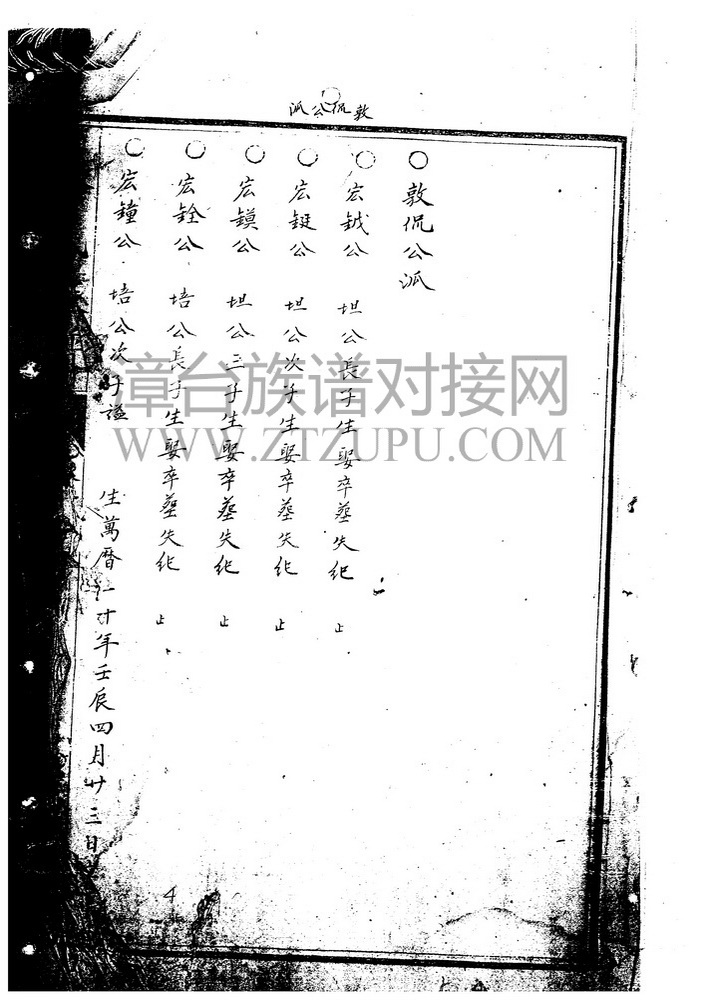 敦侃公派
○敦侃公派
○宏鉞公 坦公長子生娶卒塟失紀 止
○宏鋌公 坦公次子生娶卒塟失紀 止
○宏鏌公 坦公三子生娶卒塟失紀 止
○宏銓公 培公長子生娶卒塟失紀 止
○宏鐘公 培公次子謚 生萬曆二十年壬辰四月廿三日
4
漳台族谱对接网
WWW.ZTZUPU.COM